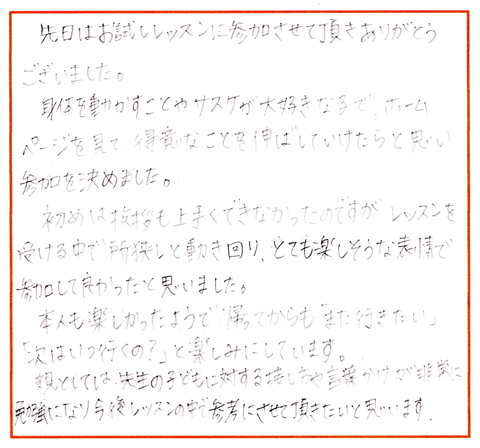 先日はお試しレッスンに参加させて頂きありがとう
ございました。
身体を動かすことやサスケが大好きな子で、ホーム
ページを見て得意なことを伸ばしていけたらと思い
参加を決めました。
初めは挨拶も上手くできなかったのですがレッスンを
受ける中で所狭しと動き回り、とても楽しそうな表情で
参加して良かったと思いました。
本人も楽しかったようで帰ってからも「また行きたい」
「次はいつ行くの?」と楽しみにしています。
親としては、先生の子どもに対する接し方や言葉かけが非常に
勉強になり今後レッスンの中で参考にさせて頂きたいと思います.